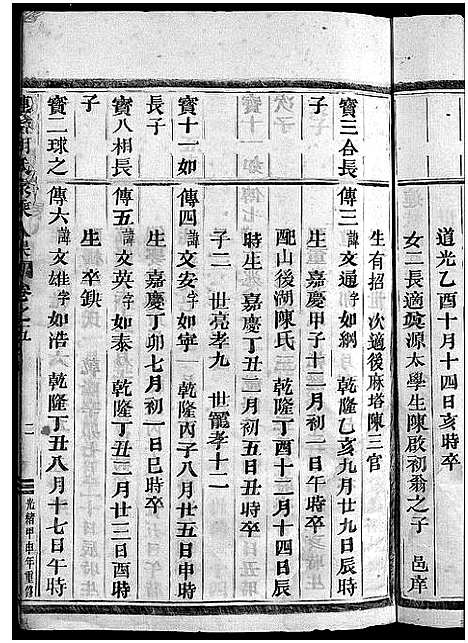 道光乙酉十月十四日亥時卒
女二長適 源太學生陳啟初翁之子 邑庠
生有招 次適後麻塔陳三官
寶三合長 傳三 諱文通字如納 乾隆乙亥九月廿九日辰時
子
生 嘉慶甲子十二月初一日午時卒
配山後湖陳氏 乾隆丁酉十二月十四日辰
時生 嘉慶丁丑 月初五日丑時卒
子二 世亮孝九 世寵孝十二
寶十一如 傳四 諱文安字如寧 乾隆丙子八月廿五日申時
長子
生 嘉慶丁卯七月初一日巳時卒
寶八相長 傳五 諱文英字如泰 乾隆丁丑 月廿三日酉時
子
生 卒缺
寶二球之 傳六 諱文雄字如浩 乾隆丁丑八月十七日午時
卷之五
二
光緒甲申年重修